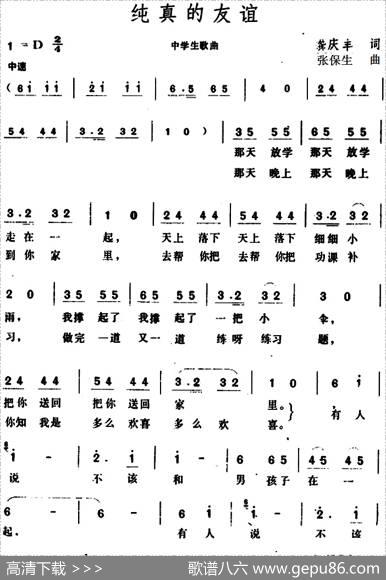 纯真的友谊
1=D 2/4
中学生歌曲
龚庆丰 词
张保生 曲
中速
(61 11 | 21 11 | 6.5 65 | 4 0 | 24 44 |
54 44 | 3.2 32 | 1 0) | 35 55 | 35 55 |
那天 放学 那天 放学
那天 晚上 那天 晚上
3.2 32 | 1 0 | 24 44 | 24 44 | 3.2 32 |
走在一 起， 天上 落下 天上 落下 细细 小
到你家 里， 去帮 你把 去帮 你把 功课 补
2 0 | 35 55 | 35 55 | 3.2 32 | 3 0 |
雨， 我撑 起了 我撑 起了 一把 小 伞，
习， 做完 一道 又一 道 练呀 练习 题，
24 44 | 54 44 | 3.2 32 | 1 0 | 6 1 |
把你 送回 把你 送回 家 里。 有人
你知 我是 多么 欢喜 多么 欢 喜。
说 不该 和 男 孩子 在 一
6 - | 6 - | 6 1 | - 1 | 2. 1 |
起。 有人 说 不该
高清下载 >>> 歌谱八六 www.gepu86.com